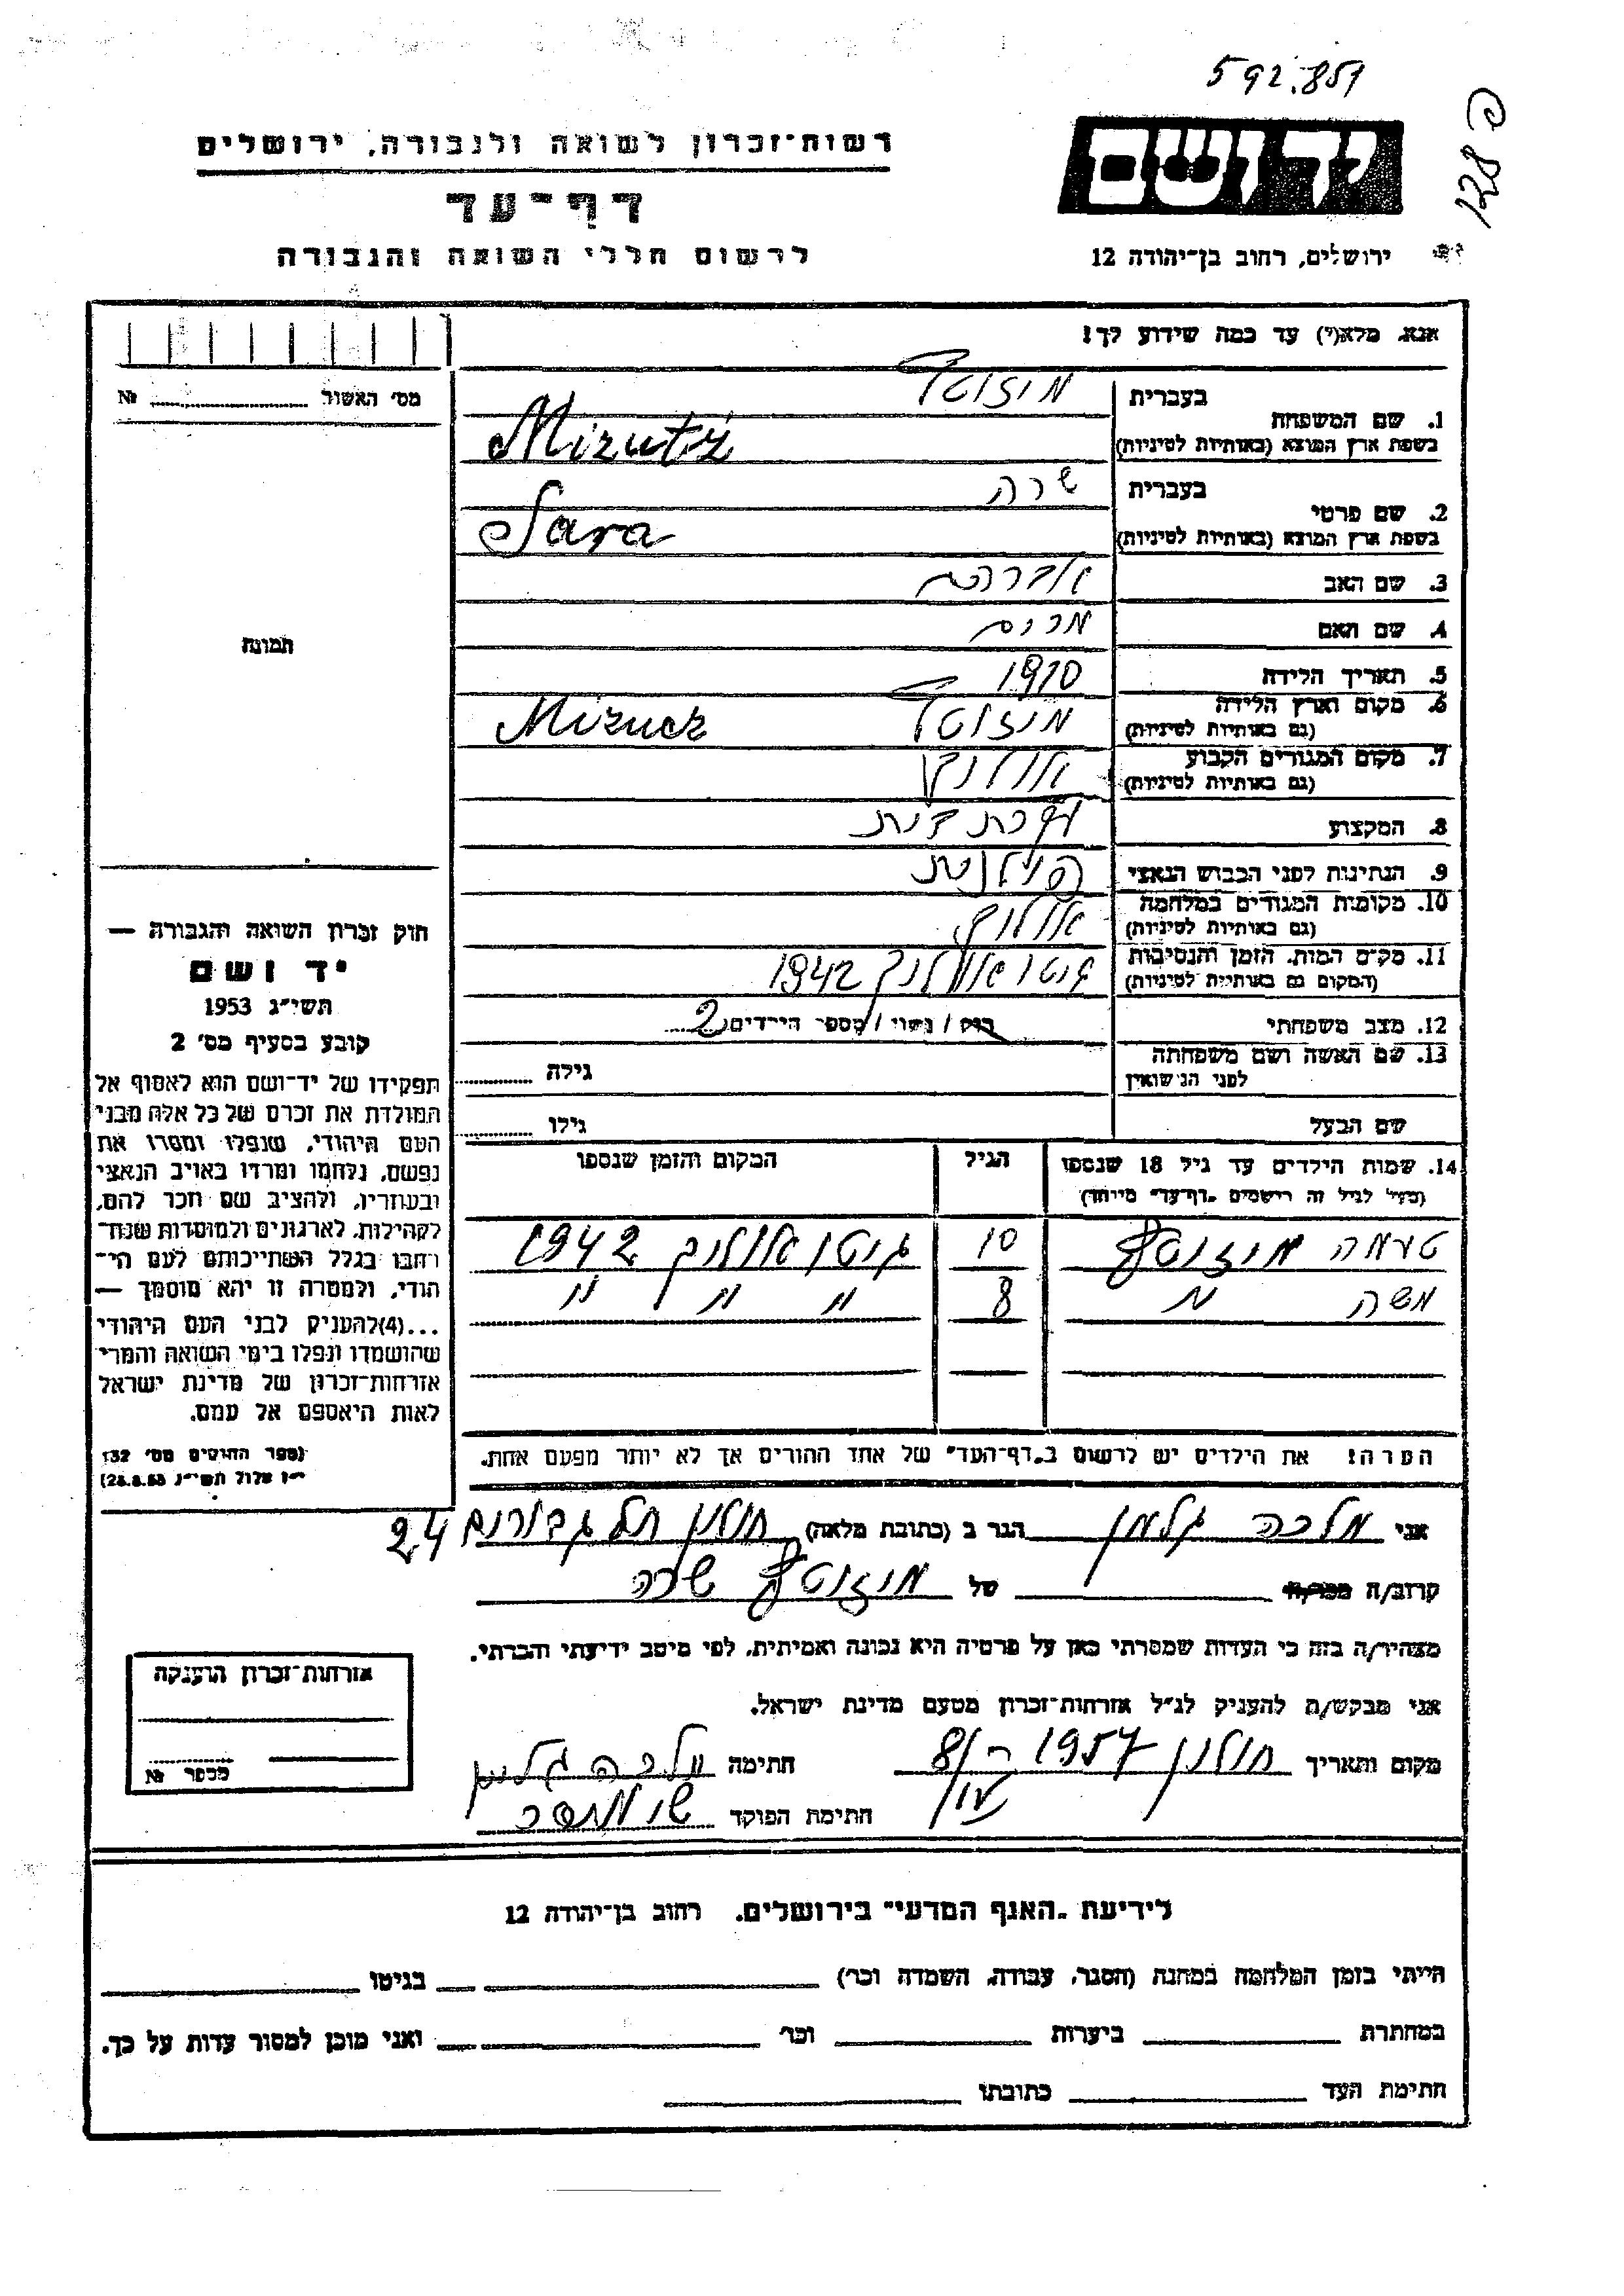 592.851
128 פ
יד ושם
רשות־זכרון לשואה ולגבורה, ירושלים
דף־עד
לרשום חללי השואה והגבורה
ירושלים, רחוב בן־יהודה 12
אנא, מלא(י) עד כמה שידוע לך!
מס׳ האשור № 
1. שם המשפחה בעברית
בשפת ארץ המוצא (באותיות לטיניות) Mizutz
2. שם פרטי בעברית שרה
בשפת ארץ המוצא (באותיות לטיניות) Sara
3. שם האב אברהם
4. שם האם מרים
5. תאריך הלידה 1910
6. מקום וארץ הלידה
(גם באותיות לטיניות) Mizucz
7. מקום המגורים הקבוע
(גם באותיות לטיניות)
8. המקצוע
9. הנתינות לפני הכבוש הנאצי פולנית
10. מקומות המגורים במלחמה
(גם באותיות לטיניות)
11. מקום המות, הזמן והנסיבות 1942
(המקום גם באותיות לטיניות)
12. מצב משפחתי רווק / נשוי / מספר הילדים 2
13. שם האשה ושם משפחתה גילה
לפני הנישואין
שם הבעל גילו
14. שמות הילדים עד גיל 18 שנספו הגיל המקום והזמן שנספו
(מעל לגיל זה רושמים „דף־עד״ מיוחד)
10 גיטו 1942
משה ״ 8 ״ ״ ״ ״
הערה! את הילדים יש לרשום ב„דף־העד״ של אחד ההורים אך לא יותר מפעם אחת.
תמונה
חוק זכרון השואה והגבורה —
יד ושם
תשי״ג 1953
קובע בסעיף מס׳ 2
תפקידו של יד־ושם הוא לאסוף אל
המולדת את זכרם של כל אלה מבני
העם היהודי, שנפלו ומסרו את
נפשם, נלחמו ומרדו באויב הנאצי
ובעוזריו, ולהציב שם וזכר להם,
לקהילות, לארגונים ולמוסדות שנח־
רבו בגלל השתייכותם לעם הי־
הודי, ולמטרה זו יהא מוסמך —
...(4) להעניק לבני העם היהודי
שהושמדו ונפלו בימי השואה והמרי
אזרחות־זכרון של מדינת ישראל
לאות היאספם אל עמם.
(ספר החוקים מס׳ 132
י״ז אלול תשי״ג 28.8.53)
אני מלכה גלמן הגר ב (כתובת מלאה) חולון תל גבורים 24
קרוב/ה מכר/ה של שרה
מצהיר/ה בזה כי העדות שמסרתי כאן על פרטיה היא נכונה ואמיתית, לפי מיטב ידיעתי והכרתי.
אני מבקש/ת להעניק לנ״ל אזרחות־זכרון מטעם מדינת ישראל.
מקום ותאריך חולון 1957 חתימה מלכה גלמן
חתימת הפוקד
אזרחות־זכרון הוענקה
מספר №
לידיעת „האגף המדעי״ בירושלים, רחוב בן־יהודה 12
הייתי בזמן המלחמה במחנה (הסגר, עבודה, השמדה וכו׳) בגיטו
במחתרת ביערות וכו׳ ואני מוכן למסור עדות על כך.
חתימת העד כתובתו